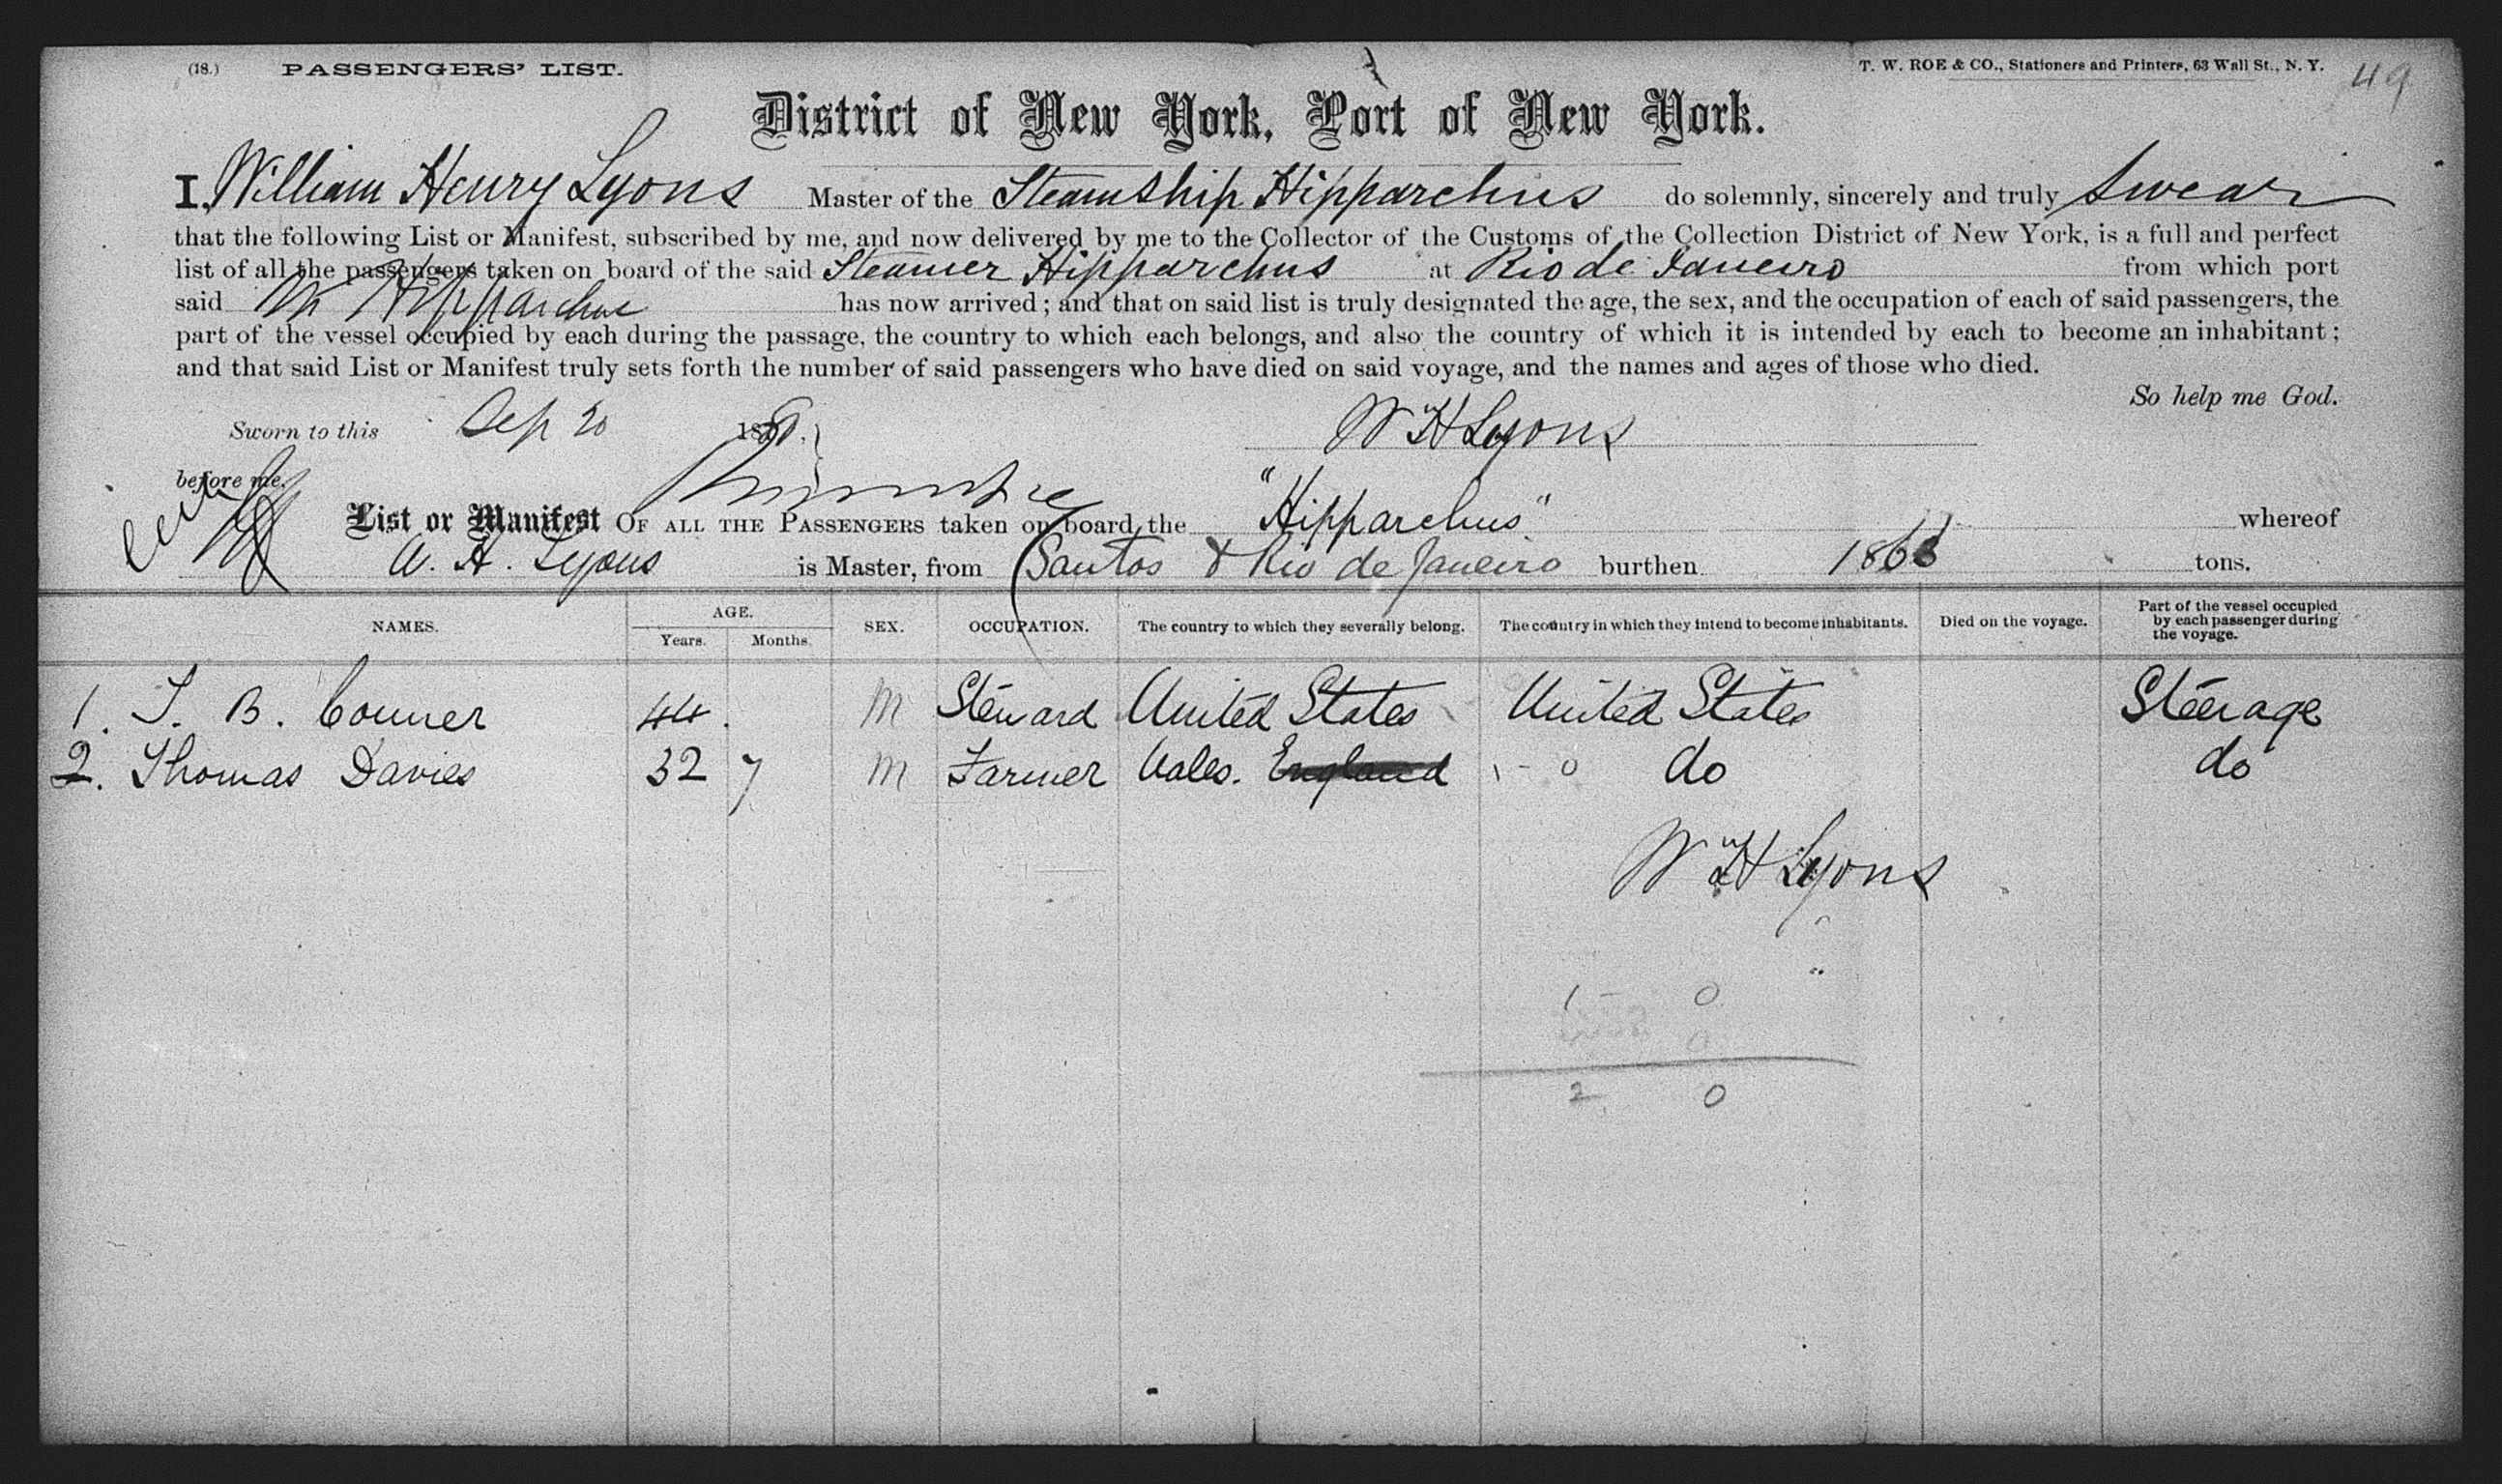 (18.) PASSENGERS' LIST. T. W. ROE & CO., Stationers and Printers, 63 Wall St., N. Y. 49
District of New York, Port of New York.
I, William Henry Lyons Master of the Steamship Hipparchus do solemnly, sincerely and truly swear
that the following List or Manifest, subscribed by me, and now delivered by me to the Collector of the Customs of the Collection District of New York, is a full and perfect
list of all the passengers taken on board of the said Steamer Hipparchus at Rio de Janeiro from which port
said Hipparchus has now arrived; and that on said list is truly designated the age, the sex, and the occupation of each of said passengers, the
part of the vessel occupied by each during the passage, the country to which each belongs, and also the country of which it is intended by each to become an inhabitant;
and that said List or Manifest truly sets forth the number of said passengers who have died on said voyage, and the names and ages of those who died.
So help me God.
Sworn to this Sep 20 188 W H Lyons
before me.
List or Manifest OF ALL THE PASSENGERS taken on board the "Hipparchus" whereof
W. H. Lyons is Master, from Santos & Rio de Janeiro burthen 1863 tons.
NAMES. AGE. Years. Months. SEX. OCCUPATION. The country to which they severally belong. The country in which they intend to become inhabitants. Died on the voyage. Part of the vessel occupied by each passenger during the voyage.
1. T. B. Conner 44. M Steward United States United States Steerage
2. Thomas Davies 32 7 M Farmer Wales. England 1 - 0 do do
W H Lyons
1 - 0
0
2 0